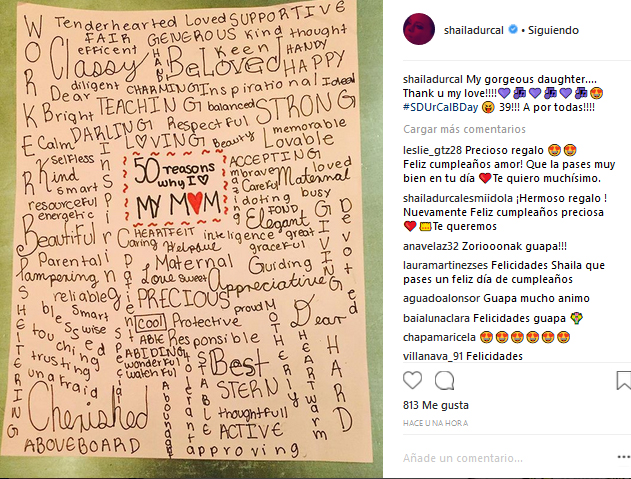 WORKER
Tenderhearted Loved SUPPORTIVE
FAIR GENEROUS Kind thought
efficent HANDY
Classy BeLoved Keen HAPPY
diligent CHARMING Inspirational Ideal
Dear
Bright TEACHING balanced STRONG
DARLING Respectful memorable
Calm LOVING Beauty Lovable
selfless
Kind
smart
resourceful
energetic
50 reasons
why I
MY MOM
ACCEPTING
brave loved
Careful Maternal
doting busy
FOND
Elegant
HEARTFELT intelligence great
Beautiful Caring Helpful graceful
Parental Maternal Guiding
Pampering Love Sweet Appreciative
reliable PRECIOUS proud
Smart cool Protective Dear
wise ABLE Responsible
touching ABIDING
trusting wonderful Best
unafraid watchful STERN
Cherished thoughtfull
ACTIVE
ABOVEBOARD approving
SHELTERING
Devoted
MOTHERLY
HEARTwarm
HARD
shailadurcal • Siguiendo
shailadurcal My gorgeous daughter....
Thank u my love!!!!💜🎳💜🎳💜🎳😍
#SDUrCalBDay 😄 39!!! A por todas!!!!
Cargar más comentarios
leslie_gtz28 Precioso regalo 😍😍
Feliz cumpleaños amor! Que la pases muy
bien en tu día ❤Te quiero muchísimo.
shailadurcalesmiidola ¡Hermoso regalo !
Nuevamente Feliz cumpleaños preciosa
❤ Te queremos
anavelaz32 Zoriooonak guapa!!!
lauramartinezses Felicidades Shaila que
pases un feliz día de cumpleaños
aguadoalonsor Guapa mucho animo
baialunaclara Felicidades guapa 💐
chapamaricela 😍😍😍😍😍😍
villanava_91 Felicidades
813 Me gusta
HACE UNA HORA
Añade un comentario...